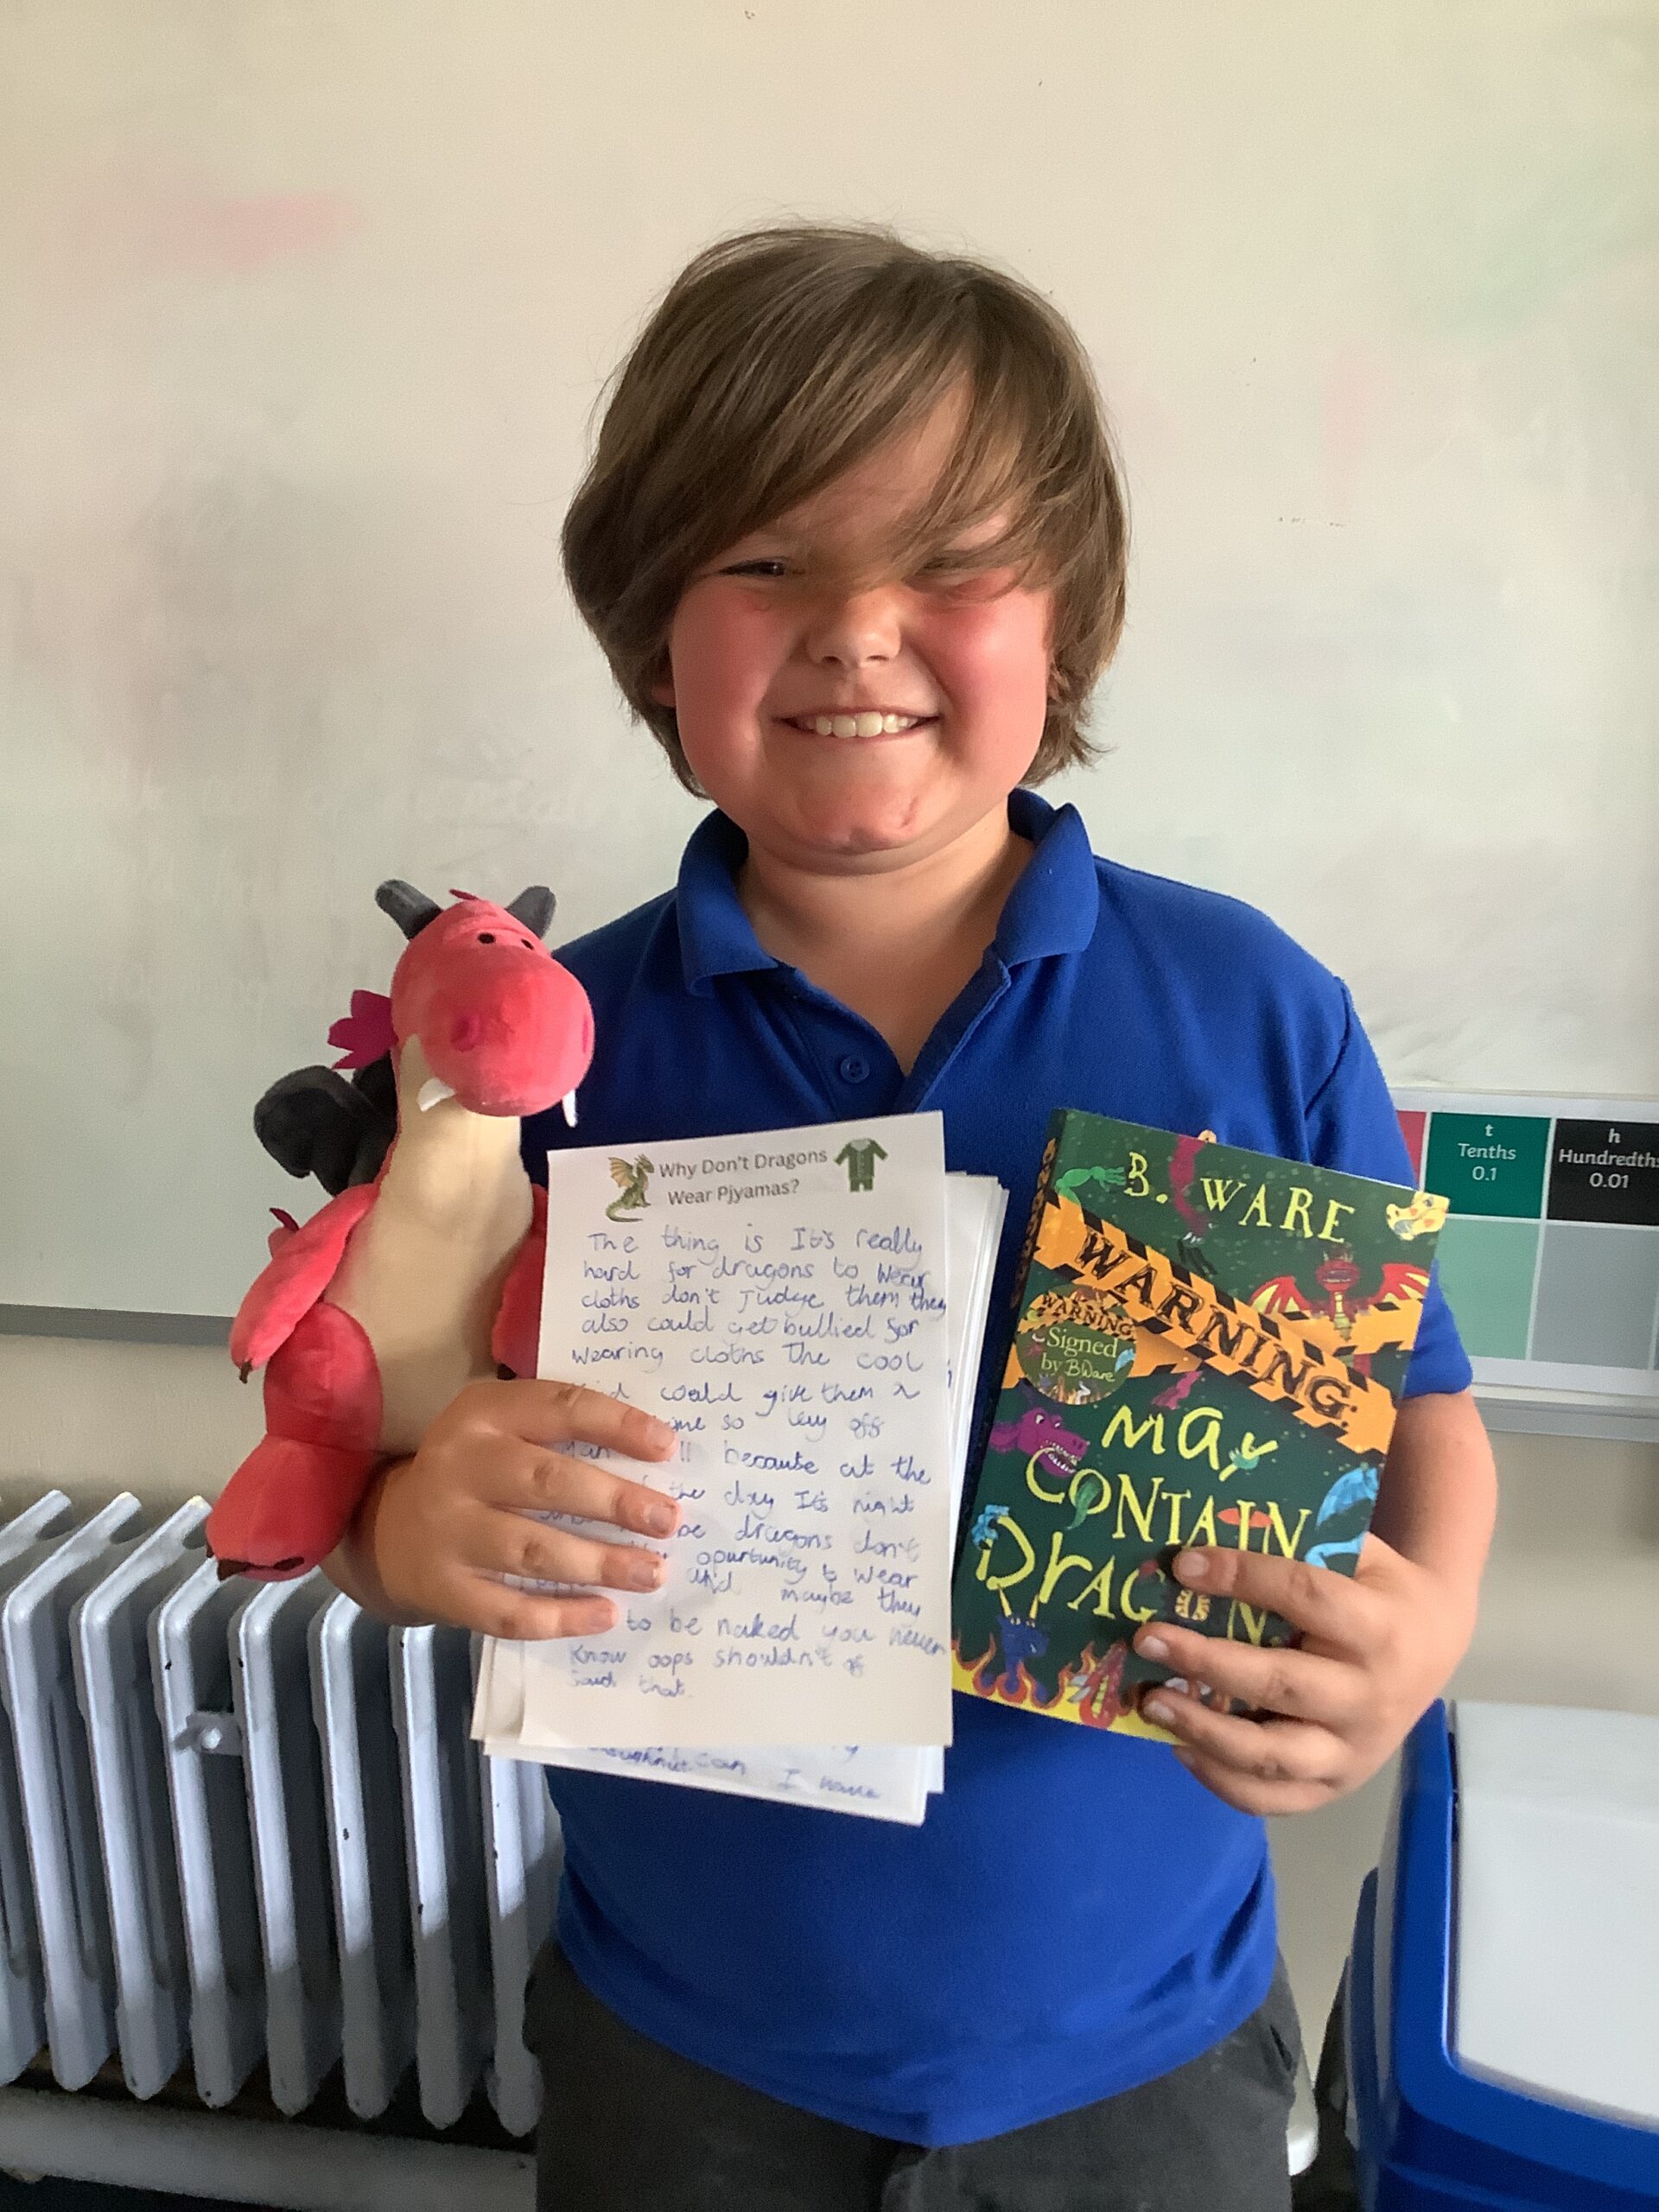 Why Don't Dragons
Wear Pjyamas?
The thing is It's really
hard for dragons to wear
cloths don't judge them they
also could get bullied for
wearing cloths The cool
could give them a
so lay off
because at the
the day It's night
dragons don't
opurtunity to wear
and maybe they
to be naked you never
know oops shouldn't of
said that.
can I
B. WARE
WARNING
WARNING
Signed
by BWare
MAY
CONTAIN
DRAGON
t
Tenths
0.1
h
Hundredths
0.01